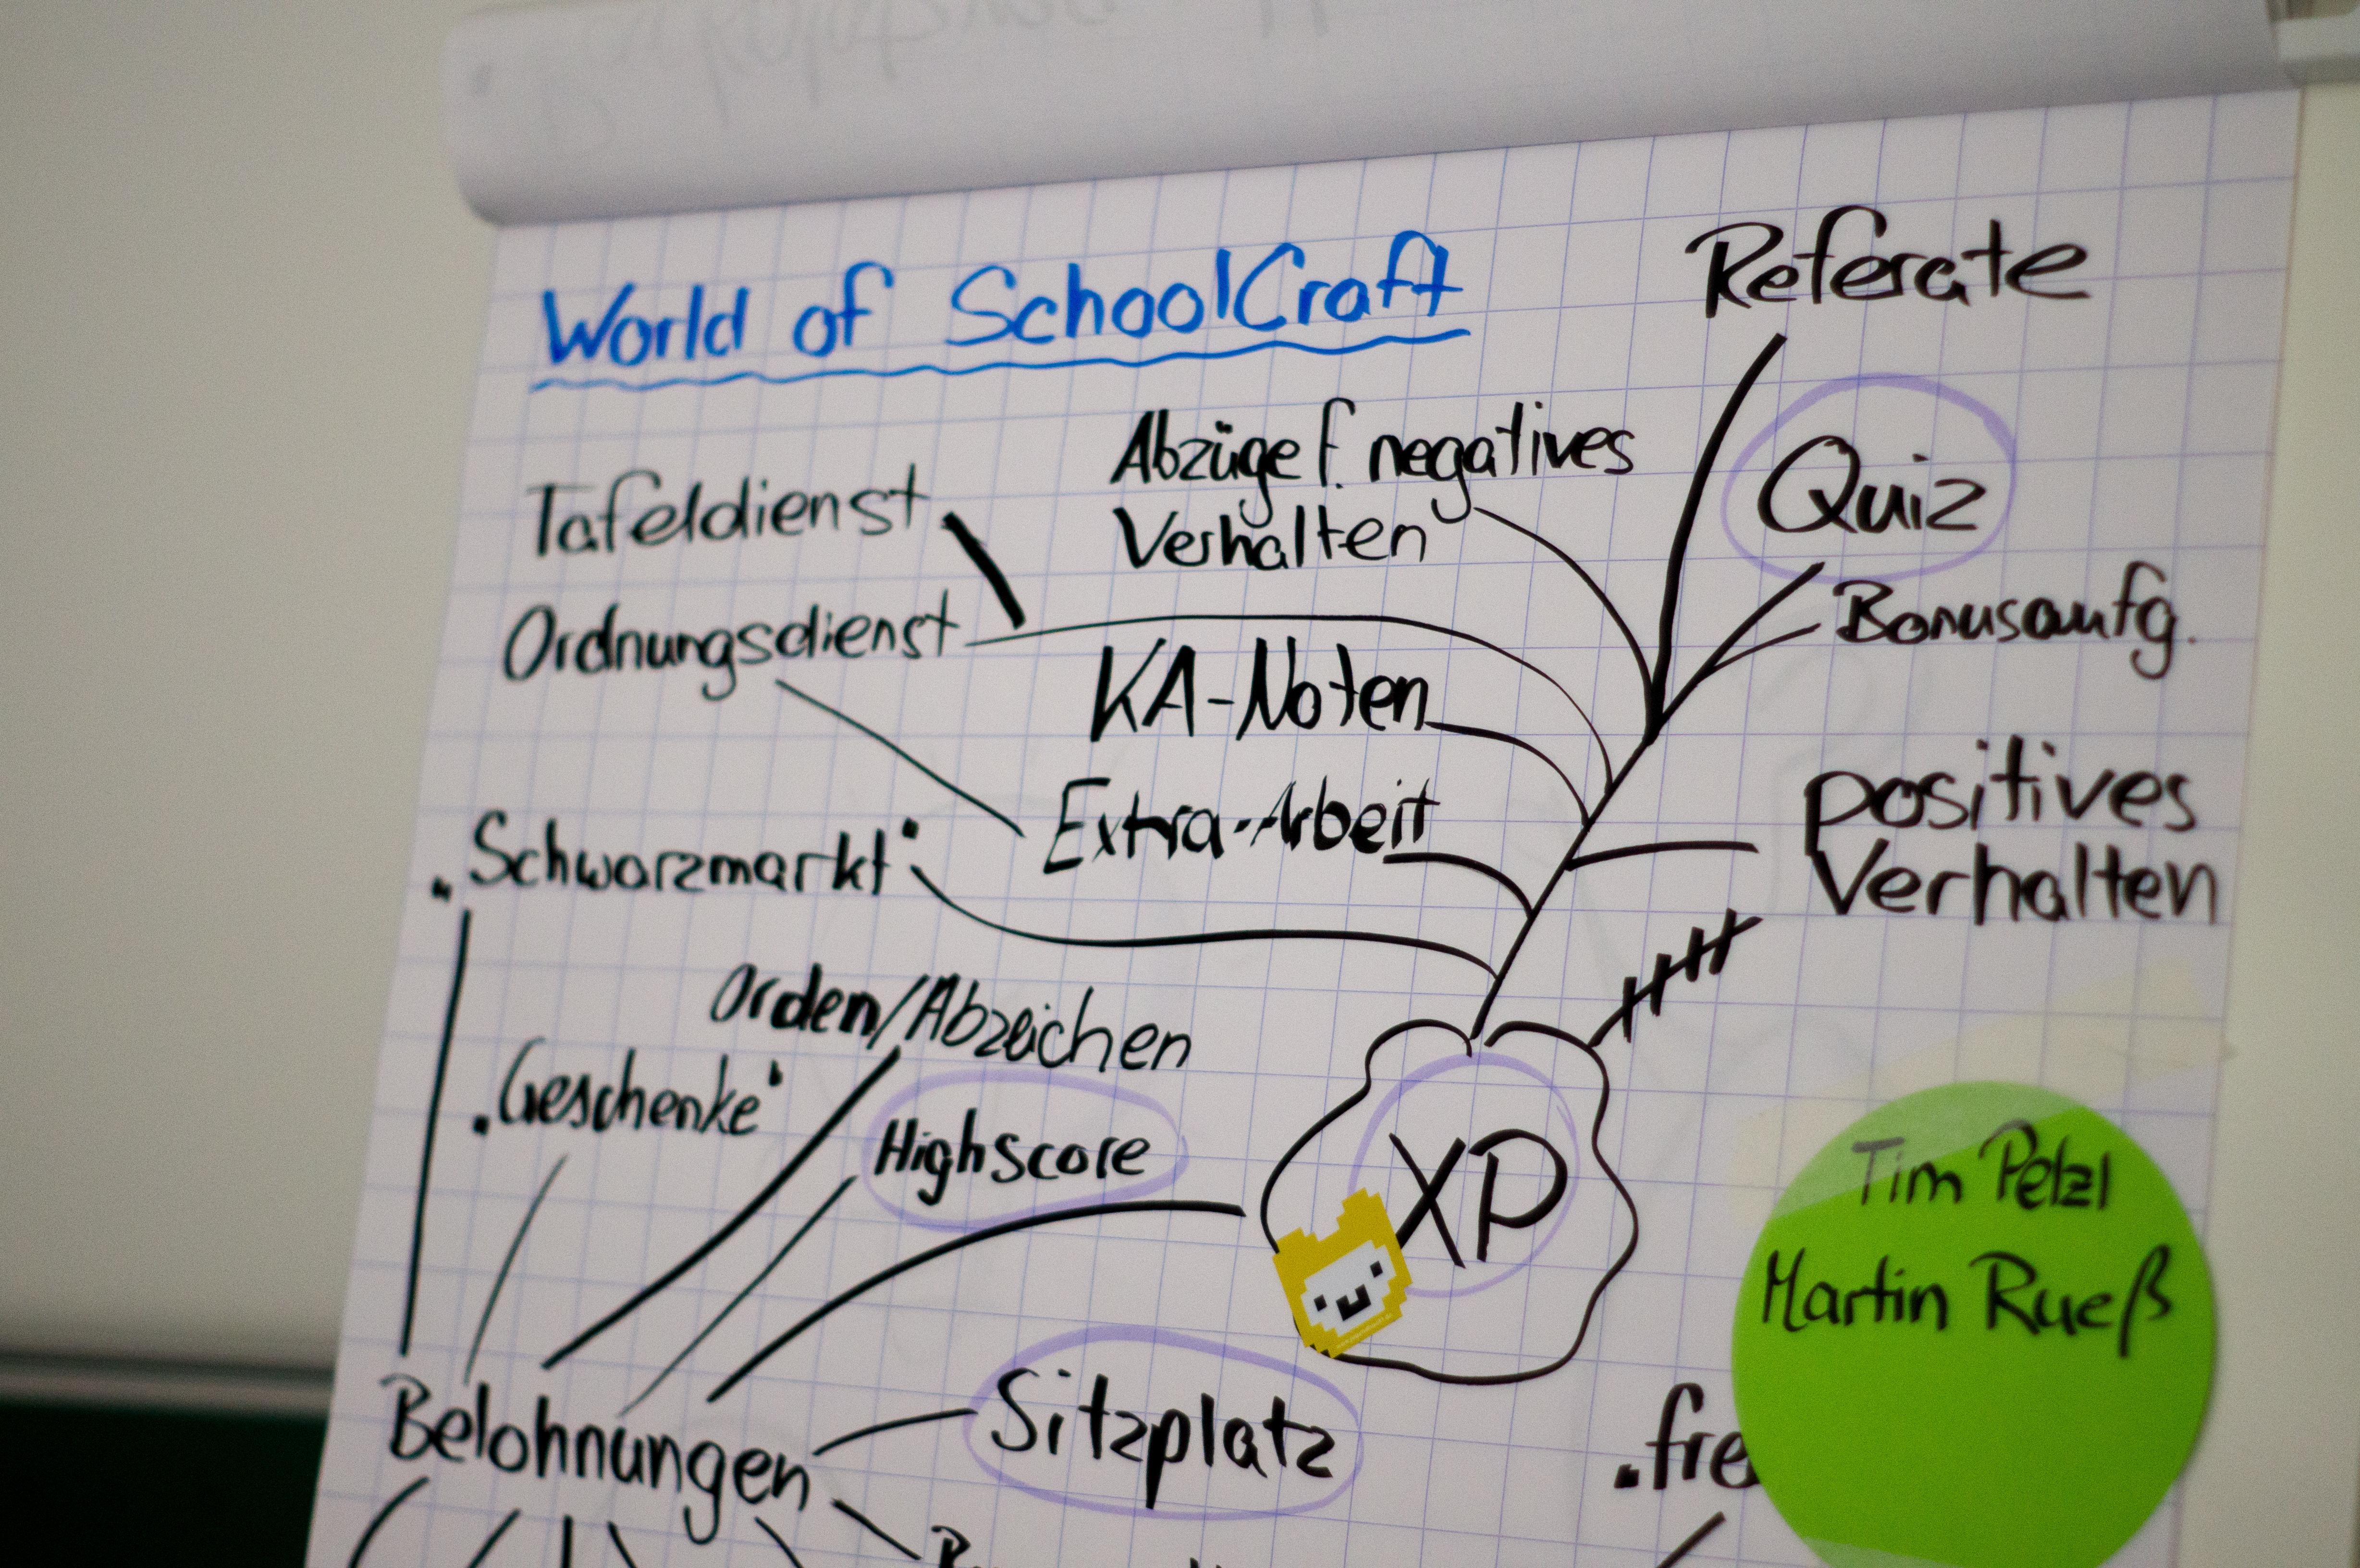 World of SchoolCraft
Referate
Abzüge f. negatives
Verhalten
Quiz
Tafeldienst
Bonusaufg.
Ordnungsdienst
KA-Noten
positives
Verhalten
Extra-Arbeit
„Schwarzmarkt“
Orden/Abzeichen
„Geschenke“
Highscore
XP
Tim Pelzl
Martin Rueß
Belohnungen
Sitzplatz